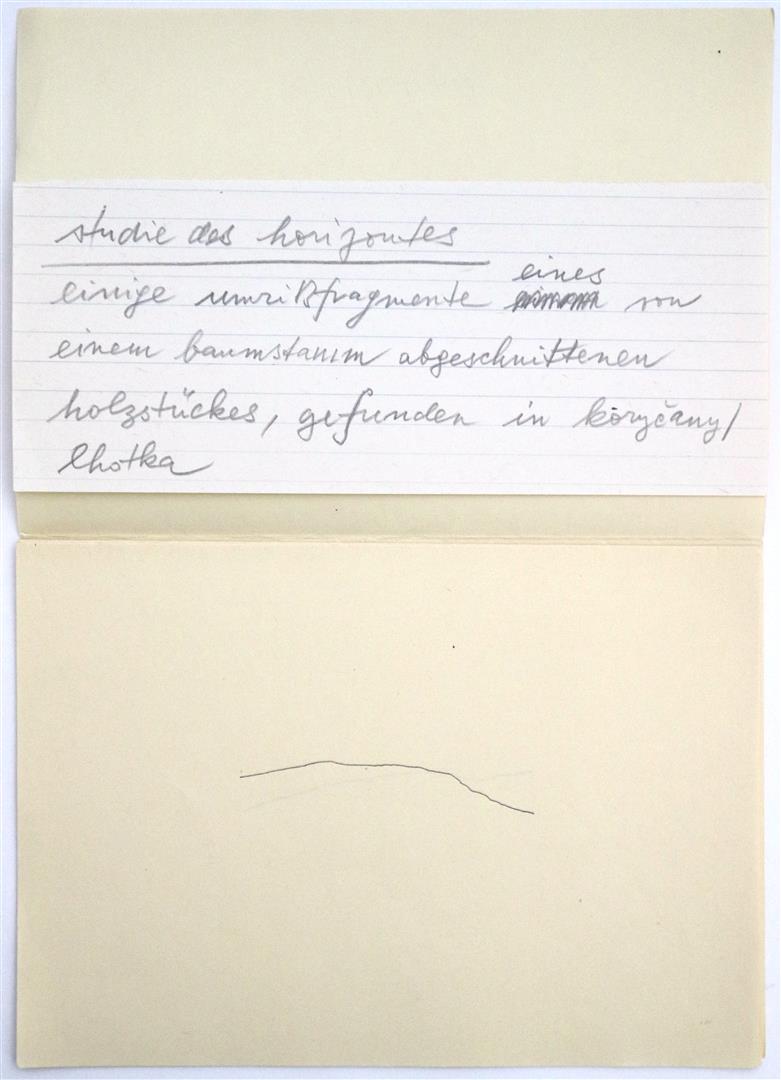 studie des horizontes
einige umrißfragmente eines von
einem baumstamm abgeschnittenen
holzstückes, gefunden in koryčany/
lhotka